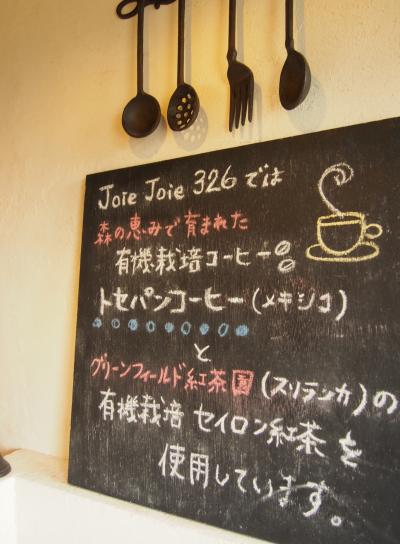 Joie Joie 326では
森の恵みで育まれた
有機栽培コーヒー
トセパンコーヒー(メキシコ)
と
グリーンフィールド紅茶園(スリランカ)の
有機栽培 セイロン紅茶を
使用しています。